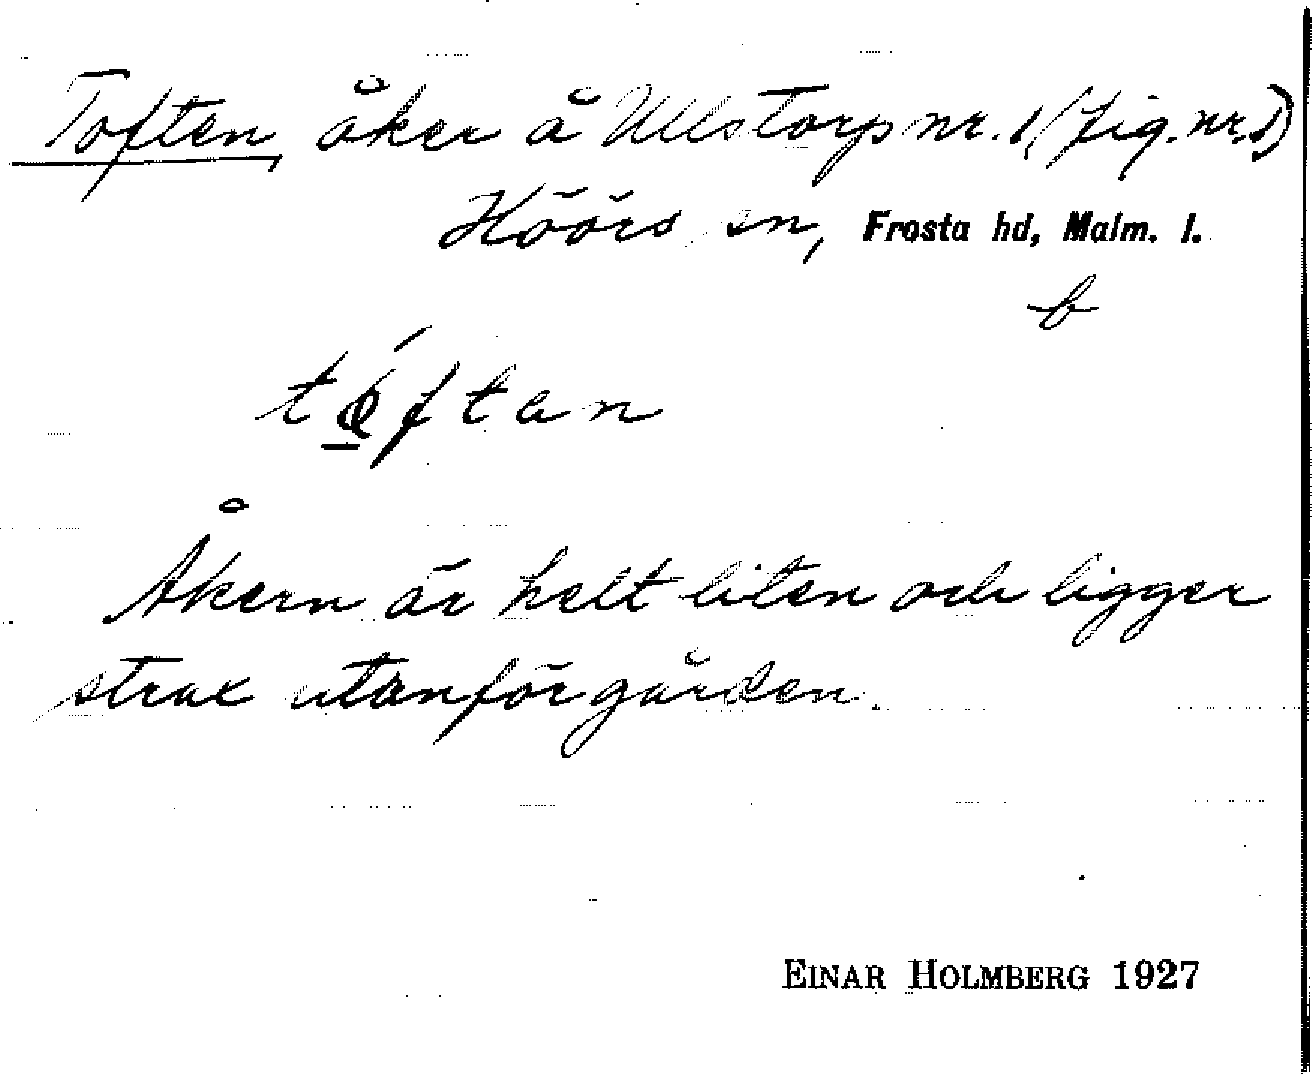 Toften, åker å Ullstorp nr. 1 (fig. nr. 1)
Höörs sn, Frosta hd, Malm. l.
b
Åkern är helt liten och ligger
strax utanför gården.
EINAR HOLMBERG 1927